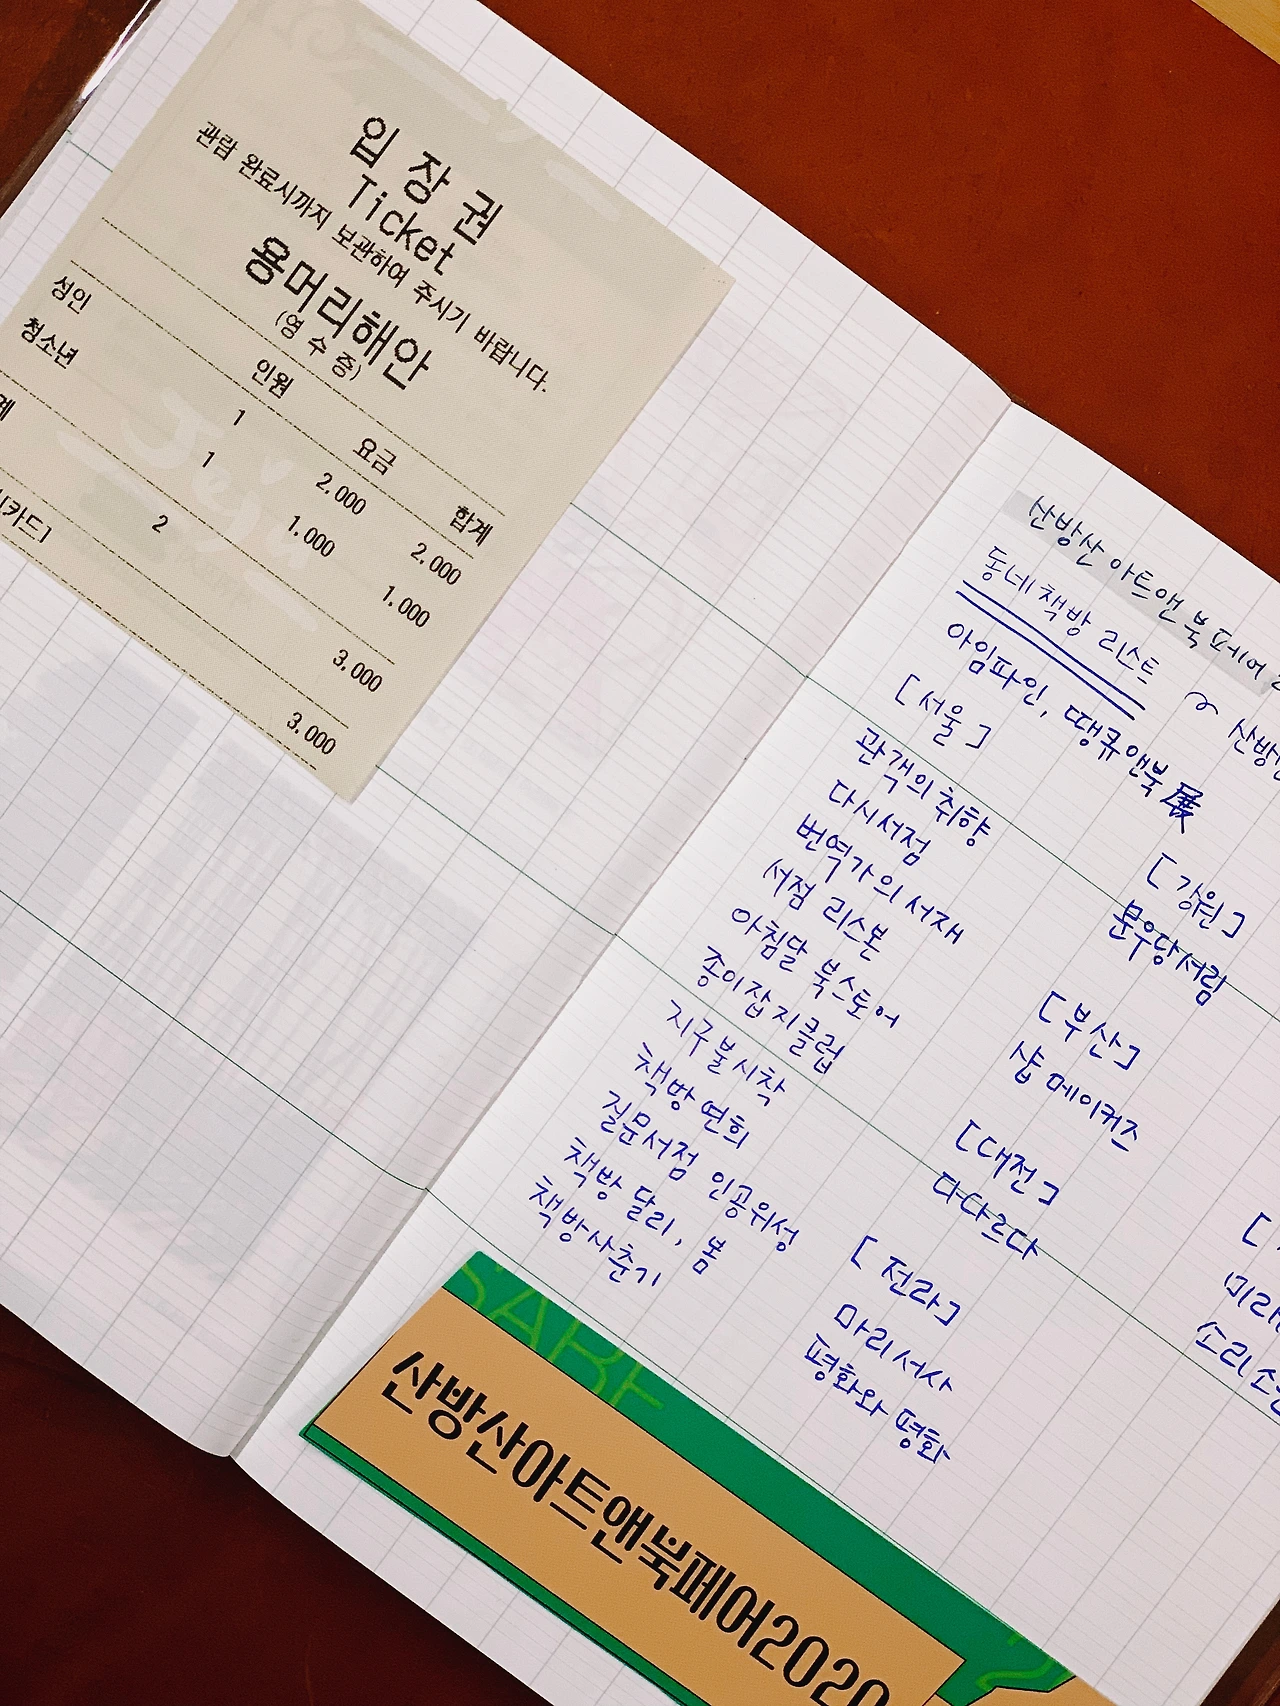 입장권
Ticket
관람 완료시까지 보관하여 주시기 바랍니다.
용머리해안
(영수증)
인원 요금 합계
성인 1 2,000 2,000
청소년 1 1,000 1,000
계 2 3,000
카드] 3,000
Jeju
산방산 아트앤북페어
동네책방 리스트
산방
아임파인, 땡큐앤북展
[서울]
관객의취향
다시서점
번역가의서재
서점 리스본
아침달 북스토어
종이잡지클럽
지구불시착
책방연희
질문서점 인공위성
책방 달리, 봄
책방사춘기
[강원]
문우당서림
[부산]
샵메이커즈
[대전]
다다르다
[전라]
마리서사
평화와 평화
[
미래
소리소
SABF
산방산아트앤북페어2020